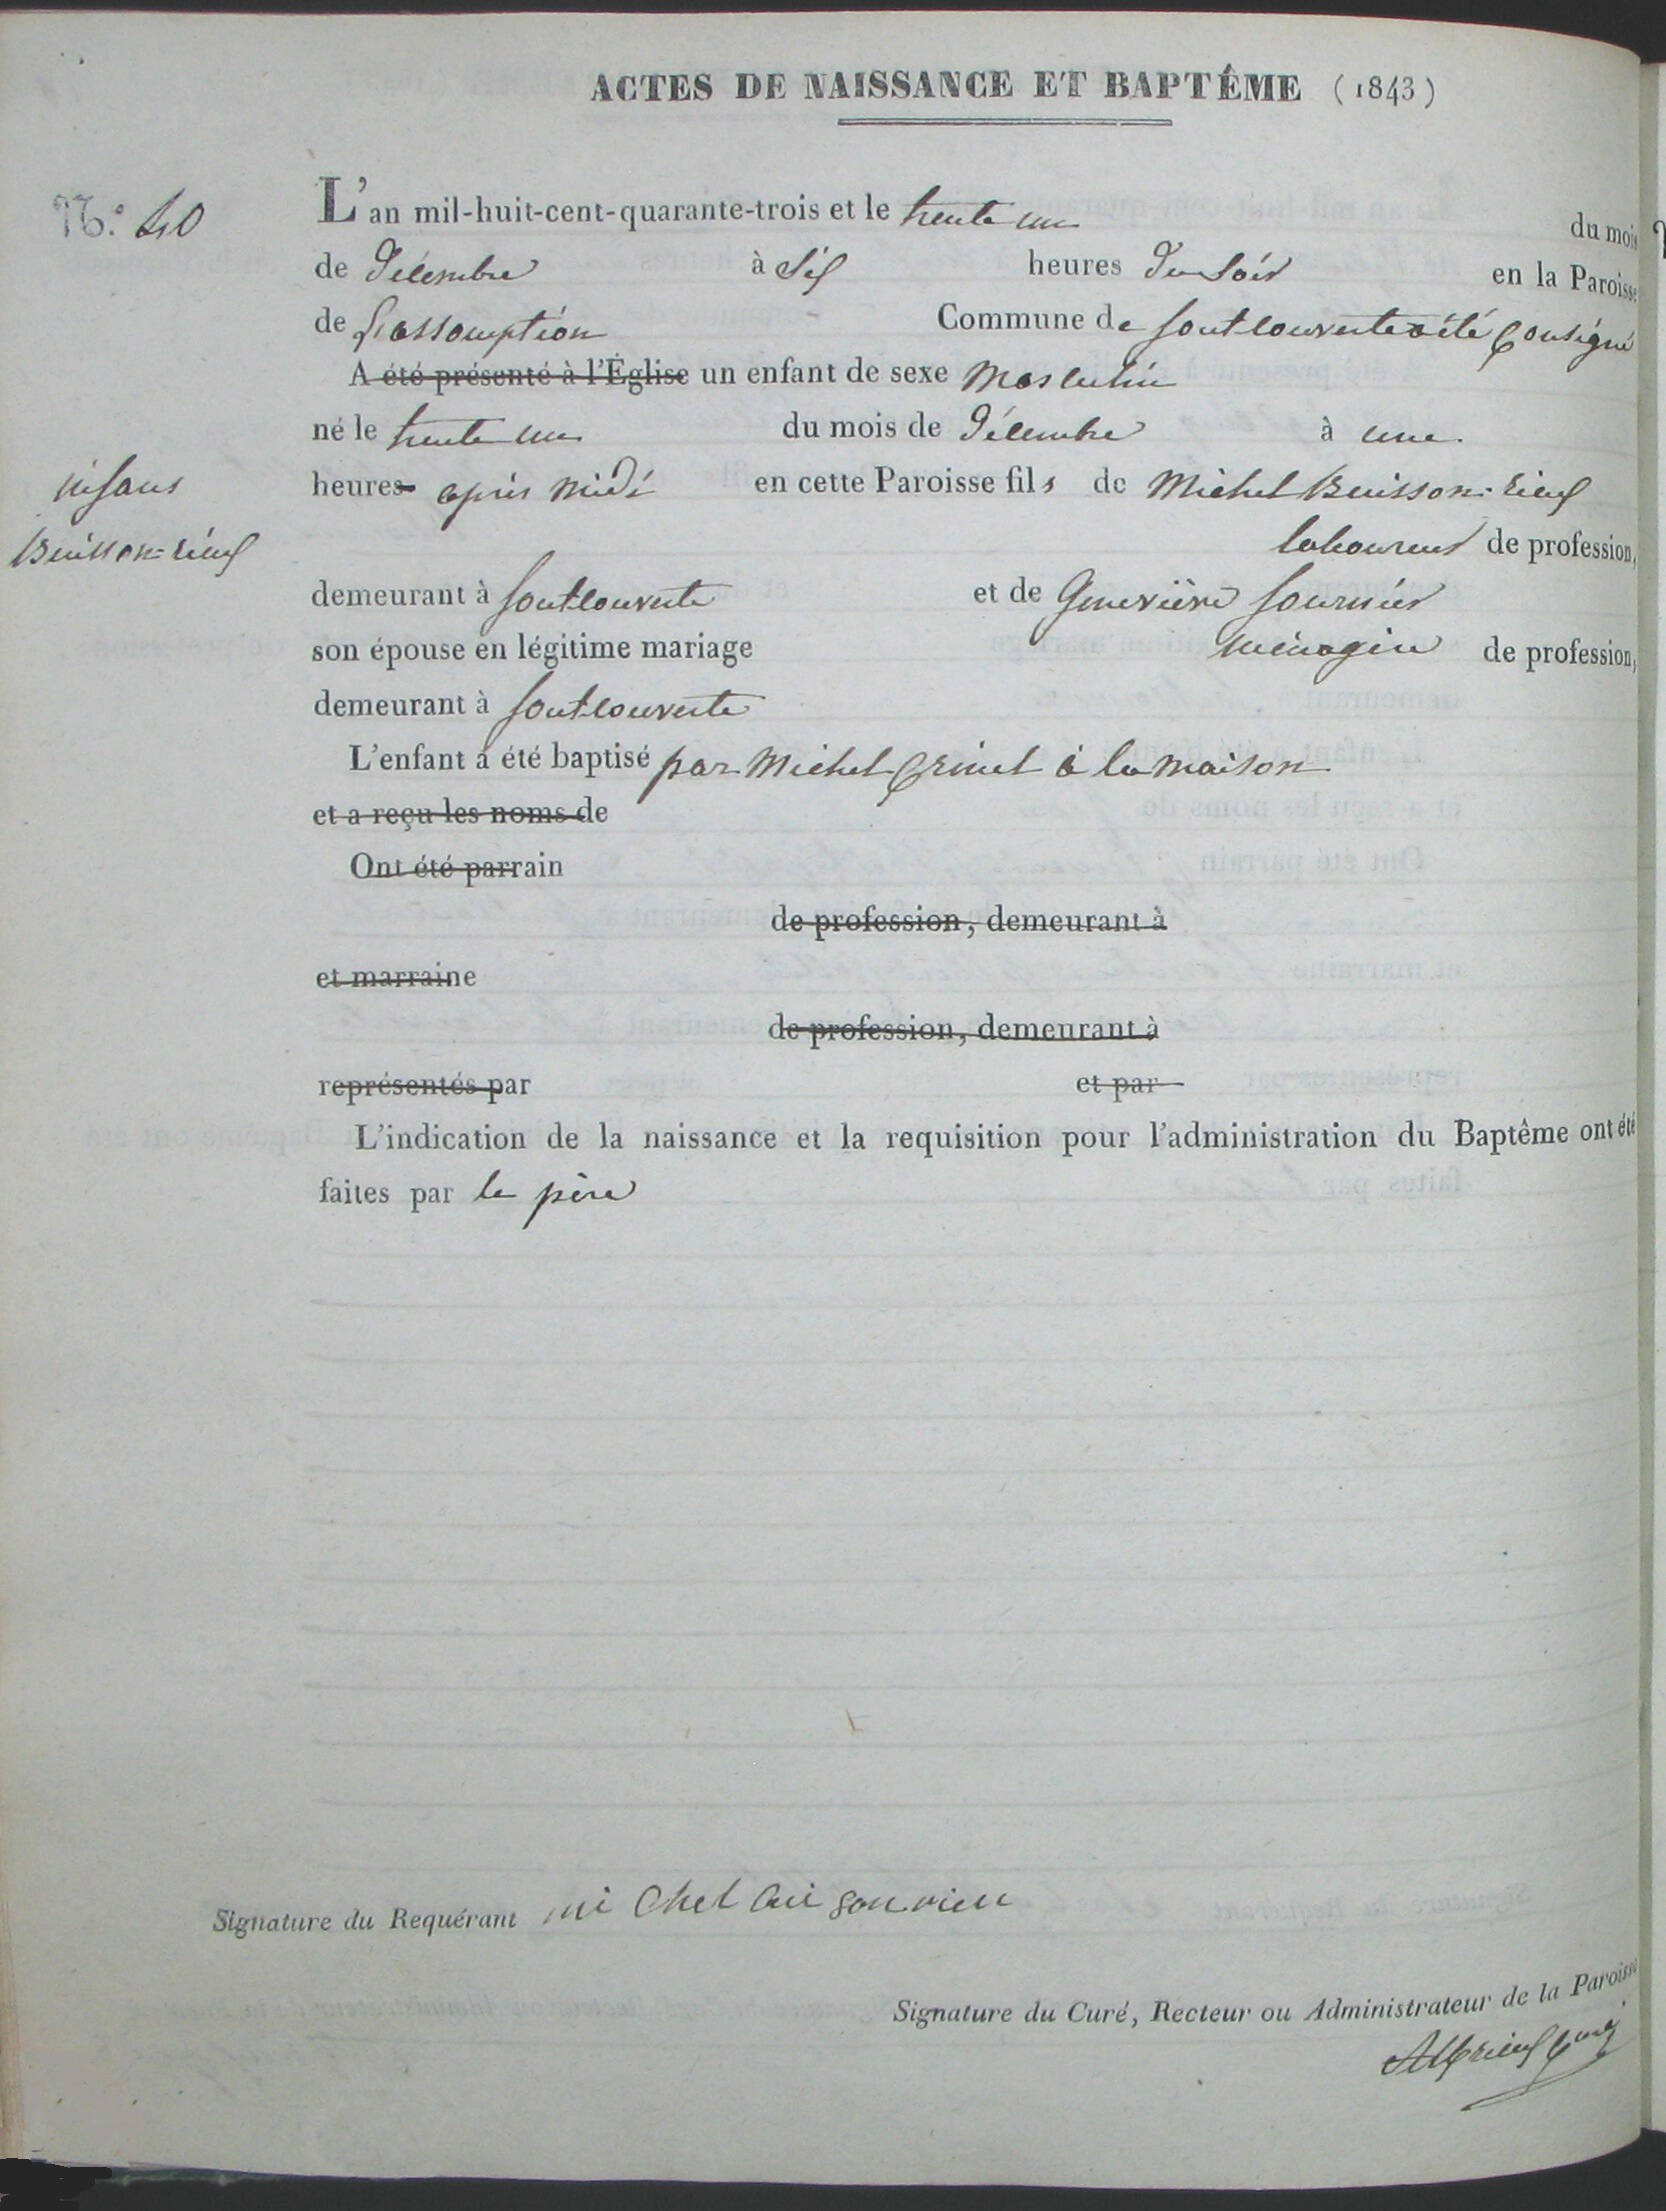 ACTES DE NAISSANCE ET BAPTÊME (1843)
N.º 40
L'an mil-huit-cent-quarante-trois et le trente un du mois
de Décembre à Six heures Du Soir en la Paroisse
de L'assomption Commune de fontcouverte a été Consigné
A été présenté à l'Église un enfant de sexe Masculin
né le trente un du mois de Décembre à une
heures après Midi en cette Paroisse fils de Michel Buisson-rieux
infans
Buisson-rieux
laboureur de profession,
demeurant à fontcouverte et de Geneviève fournier
son épouse en légitime mariage ménagère de profession,
demeurant à fontcouverte
L'enfant a été baptisé par Michel à la maison
et a reçu les noms de
Ont été parrain
de profession, demeurant à
et marraine
de profession, demeurant à
représentés par et par
L'indication de la naissance et la requisition pour l'administration du Baptême ont été
faites par le père
Signature du Requérant mi Chel bui son rieu
Signature du Curé, Recteur ou Administrateur de la Paroisse